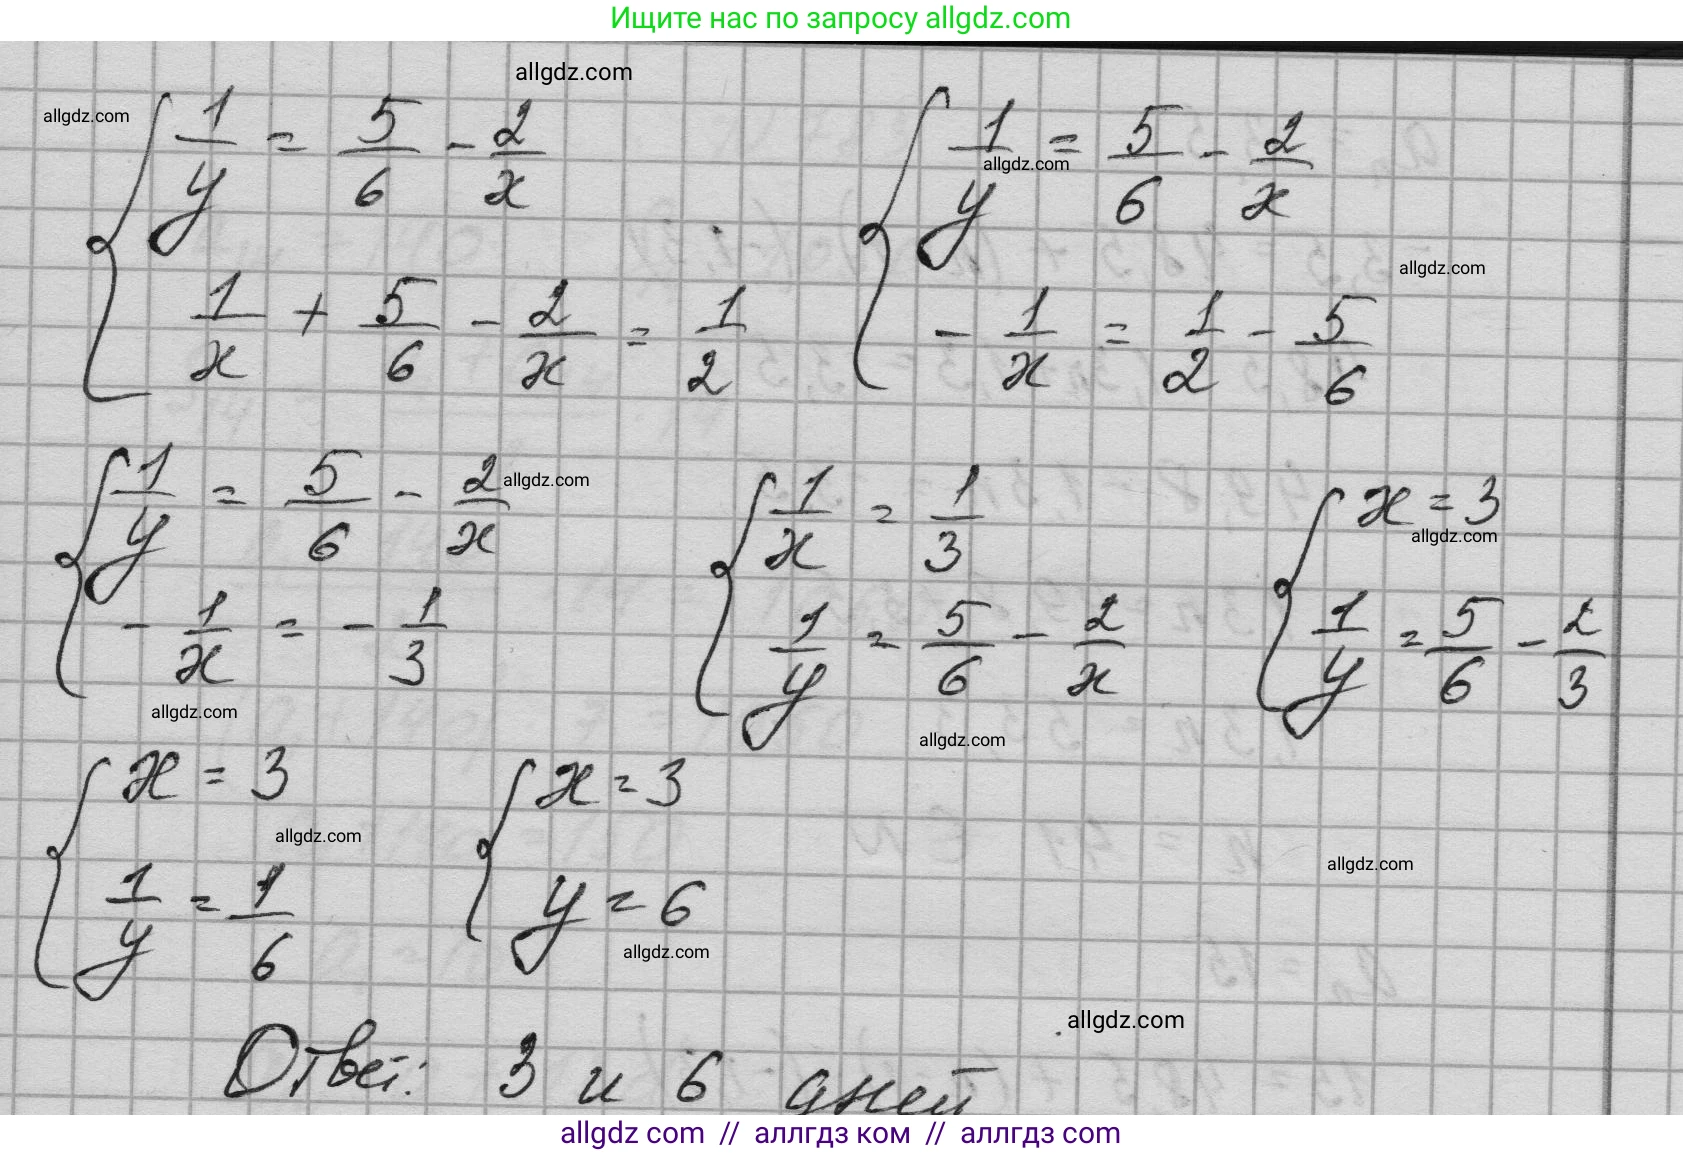 Ищите нас по запросу allgdz.com
allgdz.com
allgdz.com
{ 1/y = 5/6 - 2/x
1/x + 5/6 - 2/x = 1/2
{ 1/y = 5/6 - 2/x
allgdz.com
allgdz.com
- 1/x = 1/2 - 5/6
{ 1/y = 5/6 - 2/x
allgdz.com
- 1/x = - 1/3
allgdz.com
{ 1/x = 1/3
1/y = 5/6 - 2/x
allgdz.com
{ x = 3
allgdz.com
1/y = 5/6 - 2/3
{ x = 3
allgdz.com
1/y = 1/6
{ x = 3
y = 6
allgdz.com
allgdz.com
allgdz.com
Ответ: 3 и 6 дней
allgdz com // аллгдз ком // аллгдз com